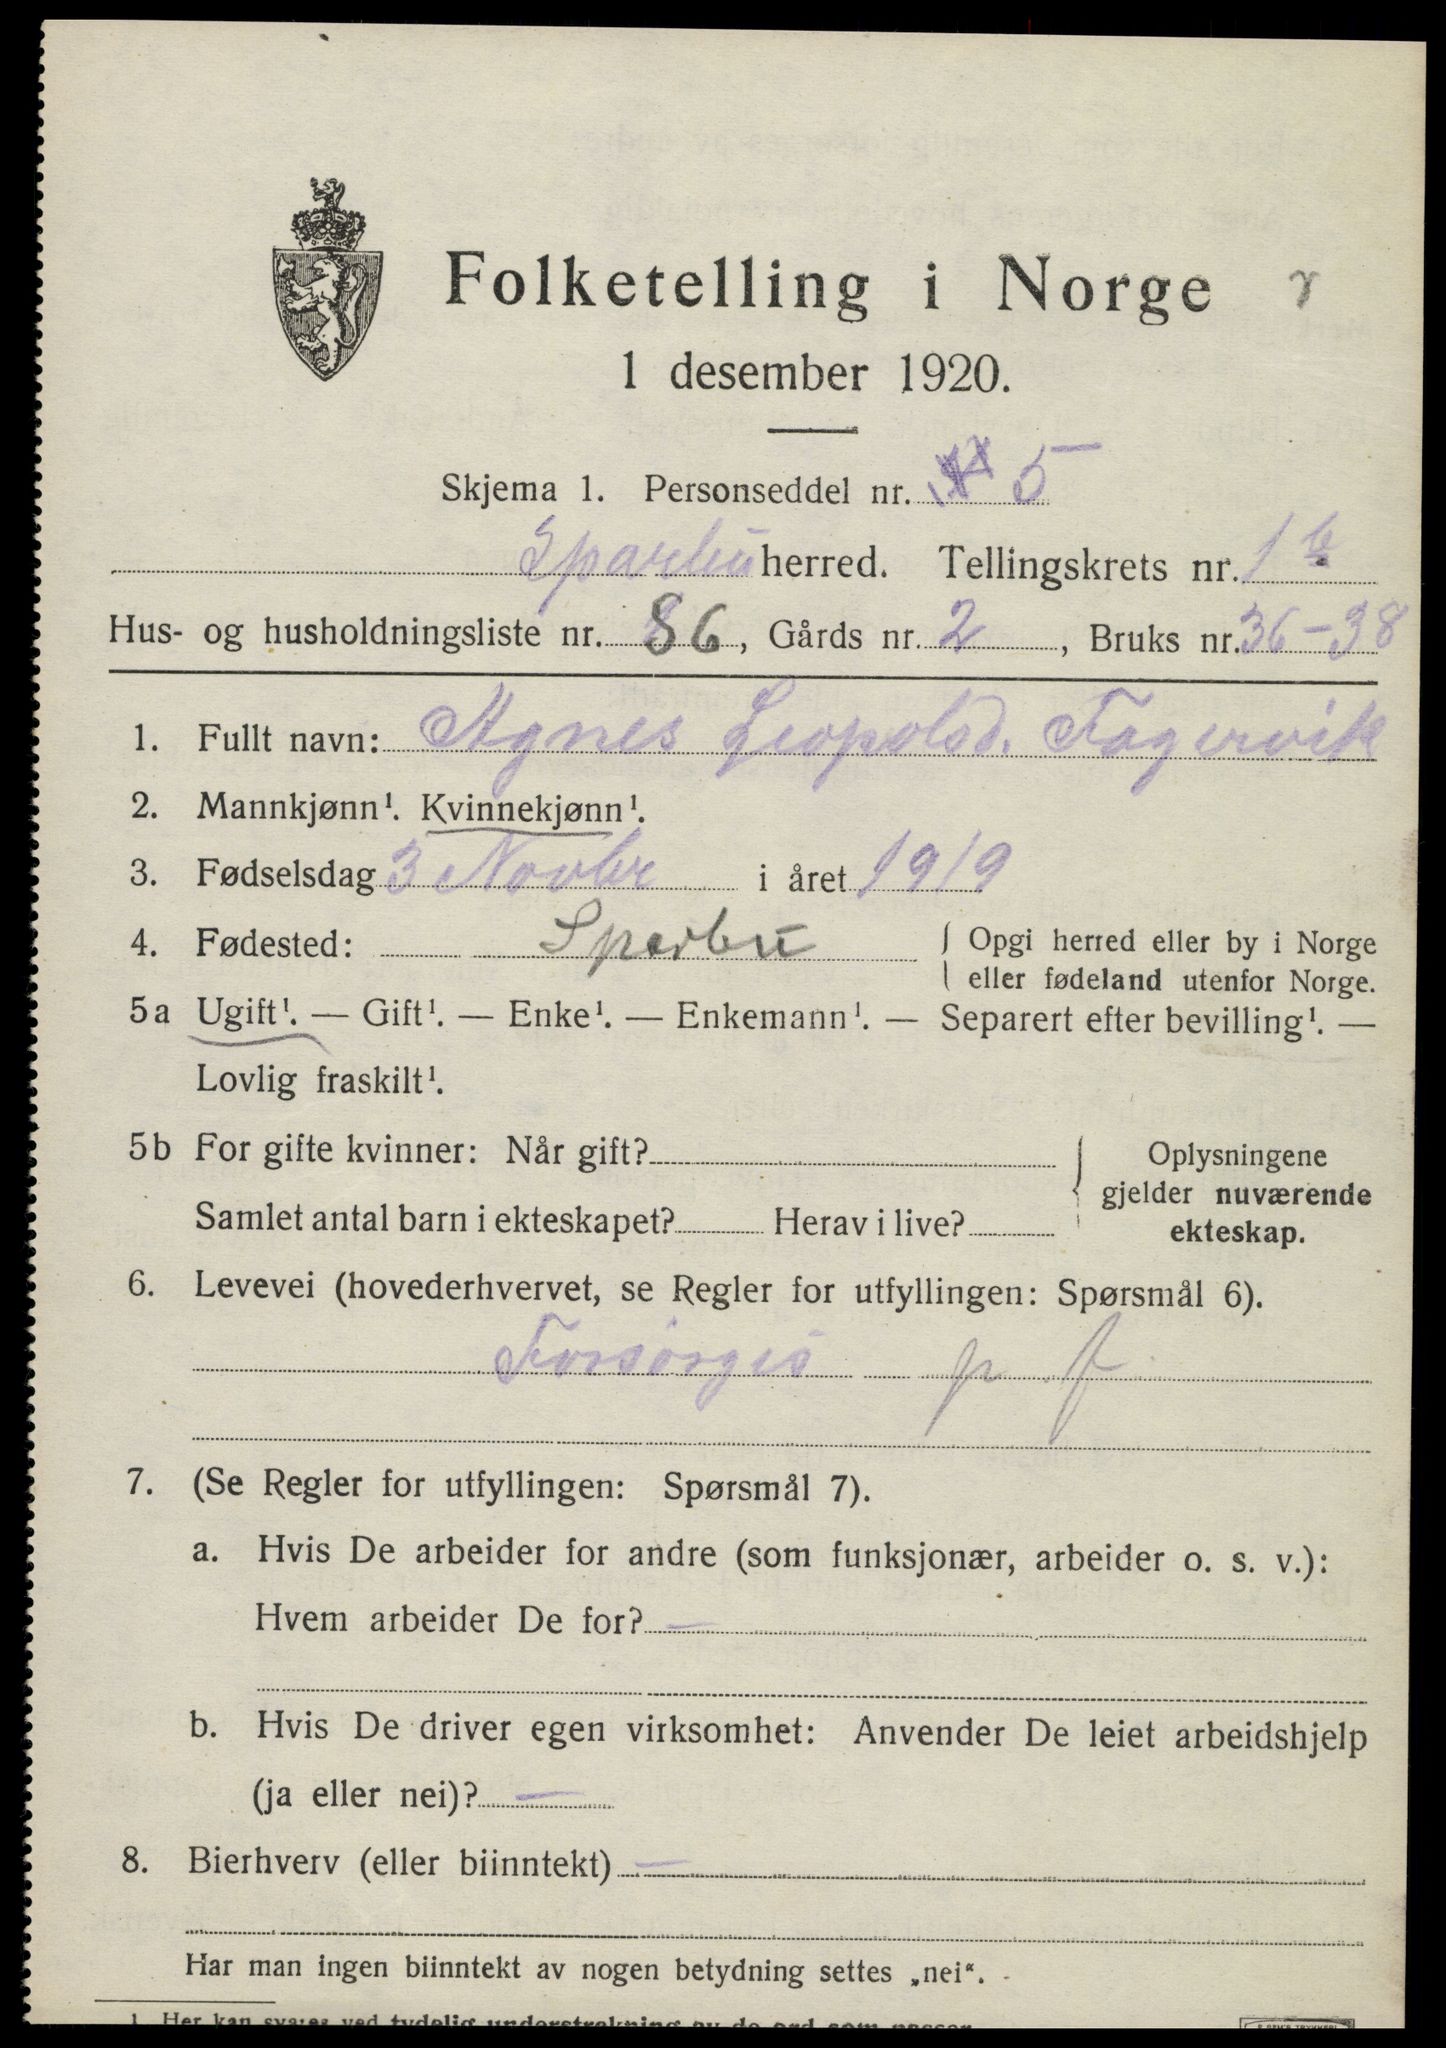 Folketelling i Norge
1 desember 1920.
Skjema 1. Personseddel nr. 5
Sparbu herred. Tellingskrets nr. 1 b
Hus- og husholdningsliste nr. 86, Gårds nr. 2, Bruks nr. 36-38
1. Fullt navn: Agnes Leopolsd. Fagervik
2. Mannkjønn¹. Kvinnekjønn¹.
3. Fødselsdag 3 Novbr i året 1919
4. Fødested: Sparbu { Opgi herred eller by i Norge
eller fødeland utenfor Norge.
5a Ugift¹. — Gift¹. — Enke¹. — Enkemann¹. — Separert efter bevilling¹. —
Lovlig fraskilt¹.
5b For gifte kvinner: Når gift? { Oplysningene
gjelder nuværende
Samlet antal barn i ekteskapet? Herav i live? ekteskap.
6. Levevei (hovederhvervet, se Regler for utfyllingen: Spørsmål 6).
Forsörges p f
7. (Se Regler for utfyllingen: Spørsmål 7).
a. Hvis De arbeider for andre (som funksjonær, arbeider o. s. v.):
Hvem arbeider De for? —
b. Hvis De driver egen virksomhet: Anvender De leiet arbeidshjelp
(ja eller nei)? —
8. Bierhverv (eller biinntekt) —
Har man ingen biinntekt av nogen betydning settes „nei“.
1. Her kan svares ved tydelig understrekning av de ord som passer.